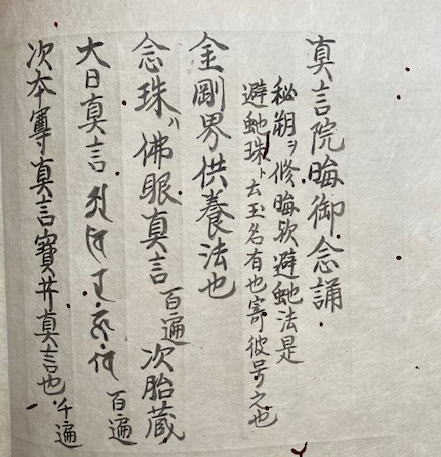 真言院晦御念誦
秘朔ヲ修晦欤避虵法是
避虵珠ト云玉名有也寄彼号之也
金剛界供養法也
念珠ハ佛眼真言百遍次胎蔵
大日真言 百遍
次本尊真言寶井真言也千遍